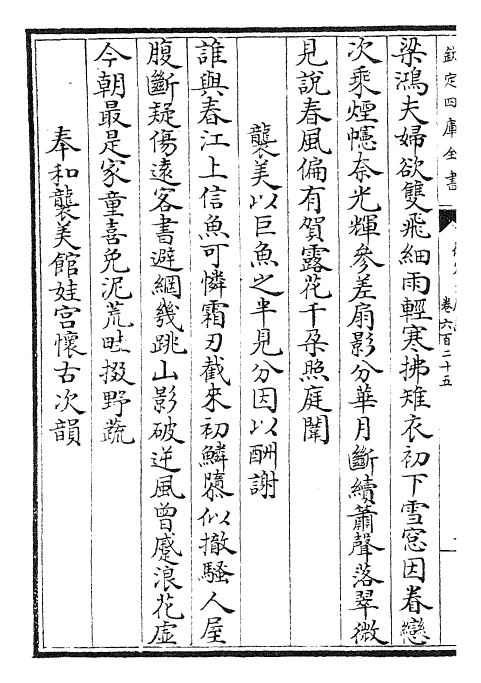 欽定四庫全書
卷六百二十五
梁鴻夫婦欲雙飛細雨輕寒拂雉衣初下雪窓因眷戀
次乘煙幰奈光輝參差扇影分華月斷續簫聲落翠微
見說春風偏有賀露花千朵照庭闈
襲美以巨魚之半見分因以酬謝
誰與春江上信魚可憐霜刃截來初鱗隳似撤騷人屋
腹斷疑傷遠客書避網幾跳山影破逆風曾蹙浪花虛
今朝最是家童喜免泥荒畦掇野蔬
奉和襲美館娃宮懷古次韻